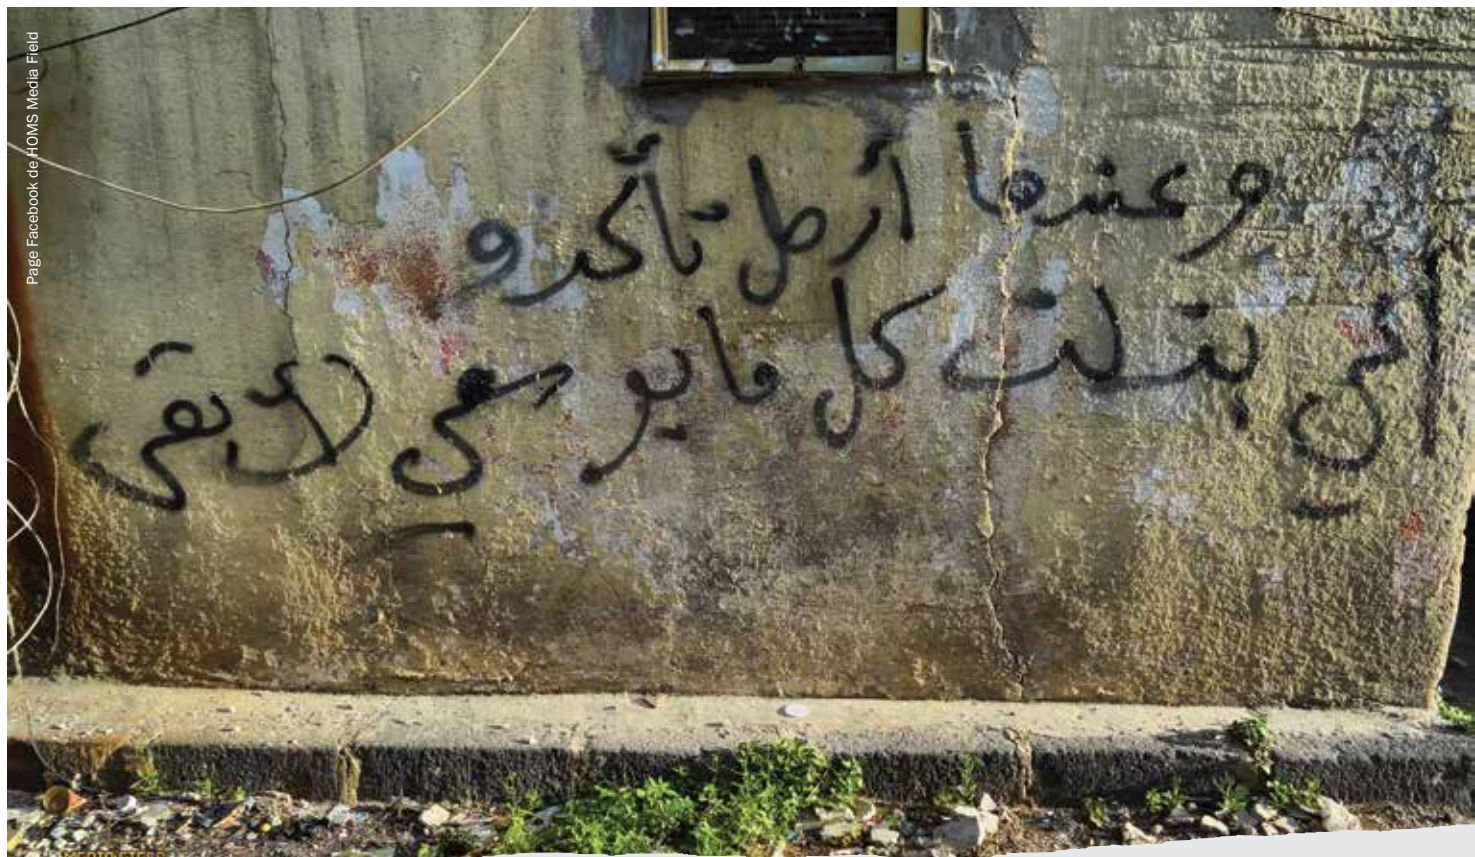 Page Facebook de HOMS Media Field
وعندما أرحل تأكدو
اني بذلت كل ما بوسعي لأبقى